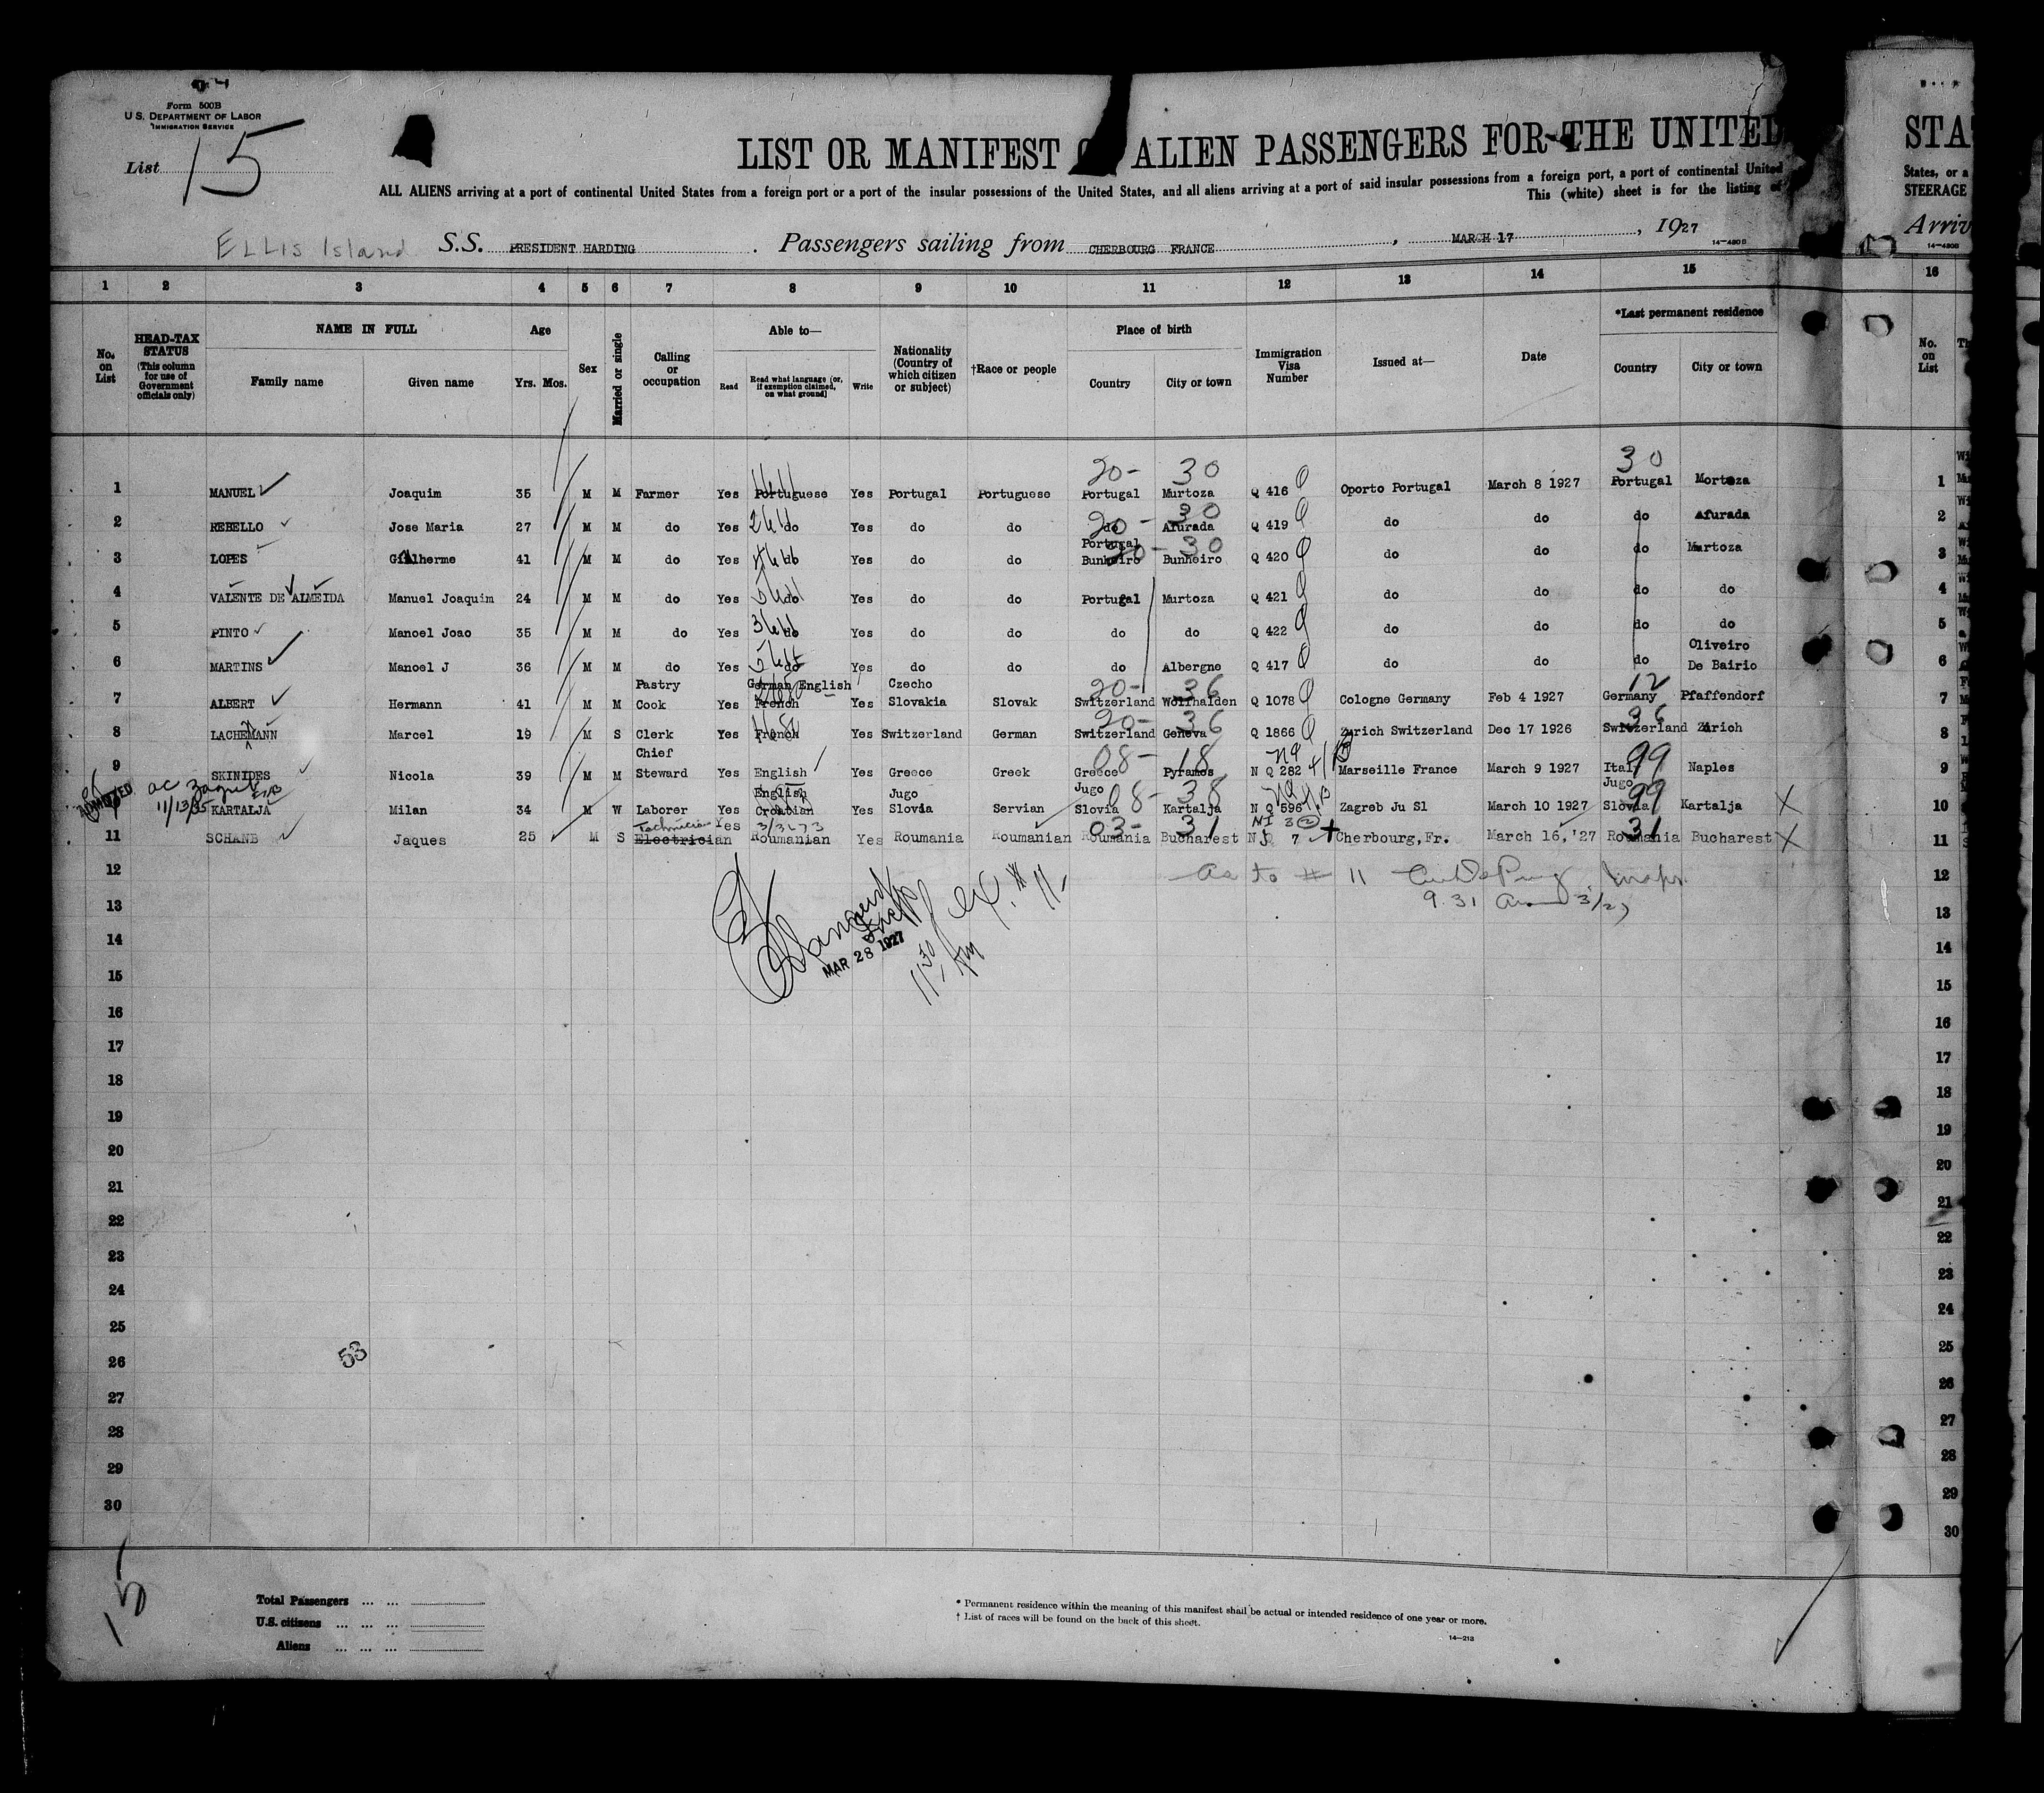 Form 500B
U.S. DEPARTMENT OF LABOR
IMMIGRATION SERVICE
List 15
LIST OR MANIFEST ALIEN PASSENGERS FOR THE UNITED STA
ALL ALIENS arriving at a port of continental United States from a foreign port or a port of the insular possessions of the United States, and all aliens arriving at a port of said insular possessions from a foreign port, a port of continental United States, or a
This (white) sheet is for the listing of STEERAGE
ELLIS Island S.S. PRESIDENT HARDING. Passengers sailing from CHERBOURG FRANCE, MARCH 17, 1927 Arriv
14-430B 14-430B
1 2 3 4 5 6 7 8 9 10 11 12 13 14 15 16
No. on List HEAD-TAX STATUS (This column for use of Government officials only) NAME IN FULL Family name Given name Age Yrs. Mos. Sex Married or single Calling or occupation Able to— Read Read what language (or, if exemption claimed, on what ground) Write Nationality (Country of which citizen or subject) †Race or people Place of birth Country City or town Immigration Visa Number Issued at— Date *Last permanent residence Country City or town No. on List
20- 30 30
1 MANUEL Joaquim 35 M M Farmer Yes Portuguese Yes Portugal Portuguese Portugal Murtoza Q 416 Oporto Portugal March 8 1927 Portugal Mortoza 1
20 - 30
2 REBELLO Jose Maria 27 M M do Yes do Yes do do do Afurada Q 419 do do do Afurada 2
Portugal 20 - 30
3 LOPES Guilherme 41 M M do Yes do Yes do do Bunheiro Bunheiro Q 420 do do do Murtoza 3
4 VALENTE DE ALMEIDA Manuel Joaquim 24 M M do Yes do Yes do do Portugal Murtoza Q 421 do do do do 4
5 PINTO Manoel Joao 35 M M do Yes do Yes do do do do Q 422 do do do do 5
Oliveiro
6 MARTINS Manoel J 36 M M do Yes do Yes do do do Albergne Q 417 do do do De Bairio 6
Pastry German English Czecho 20- 36 12
7 ALBERT Hermann 41 M M Cook Yes French Yes Slovakia Slovak Switzerland Wolfhalden Q 1078 Cologne Germany Feb 4 1927 Germany Pfaffendorf 7
20- 36 36
8 LACHEMANN Marcel 19 M S Clerk Yes French Yes Switzerland German Switzerland Geneva Q 1866 Zurich Switzerland Dec 17 1926 Switzerland Zurich 8
Chief 08- 18 99
9 SKINIDES Nicola 39 M M Steward Yes English Yes Greece Greek Greece Pyramos N Q 282 Marseille France March 9 1927 Italy Naples 9
ADMITTED 11/13/35 English Jugo Jugo 08- 38 Jugo 99
10 KARTALJA Milan 34 M W Laborer Yes Croatian Yes Slovia Servian Slovia Kartalja N Q 596 Zagreb Ju Sl March 10 1927 Slovia Kartalja X 10
Technician 03- 31 31
11 SCHANB Jaques 25 M S Electrician Yes Roumanian Yes Roumania Roumanian Roumania Bucharest 7 Cherbourg, Fr. March 16, '27 Roumania Bucharest X 11
12 As to # 11 12
13 9.31 13
MAR 28 1927
14 14
15 15
16 16
17 17
18 18
19 19
20 20
21 21
22 22
23 23
24 24
25 25
53
26 26
27 27
28 28
29 29
30 30
15
Total Passengers
U.S. citizens
Aliens
* Permanent residence within the meaning of this manifest shall be actual or intended residence of one year or more.
† List of races will be found on the back of this sheet.
14-213